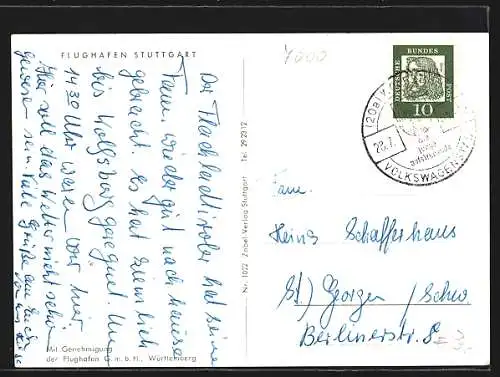 FLUGHAFEN STUTTGART
Der Flachlandtiroler hat seine
Fam. wieder gut nach hause
gebracht. Es hat ziemlich
bis Wolfsburg geregnet. Um
14 30 Uhr waren wir hier
Hier soll das Wetter nicht sehr
gewesen sein. Viele Grüße an Euch
Mit Genehmigung
der Flughafen G.m.b.H., Württemberg
Nr. 1022 Zobel-Verlag Stuttgart Tel. 292312
7000
DEUTSCHE BUNDES POST
10
(20a)
28.7.
VOLKSWAGEN
Fam.
Heinz Schafferhaus
St) Georgen / Schw.
Berlinerstr. 8